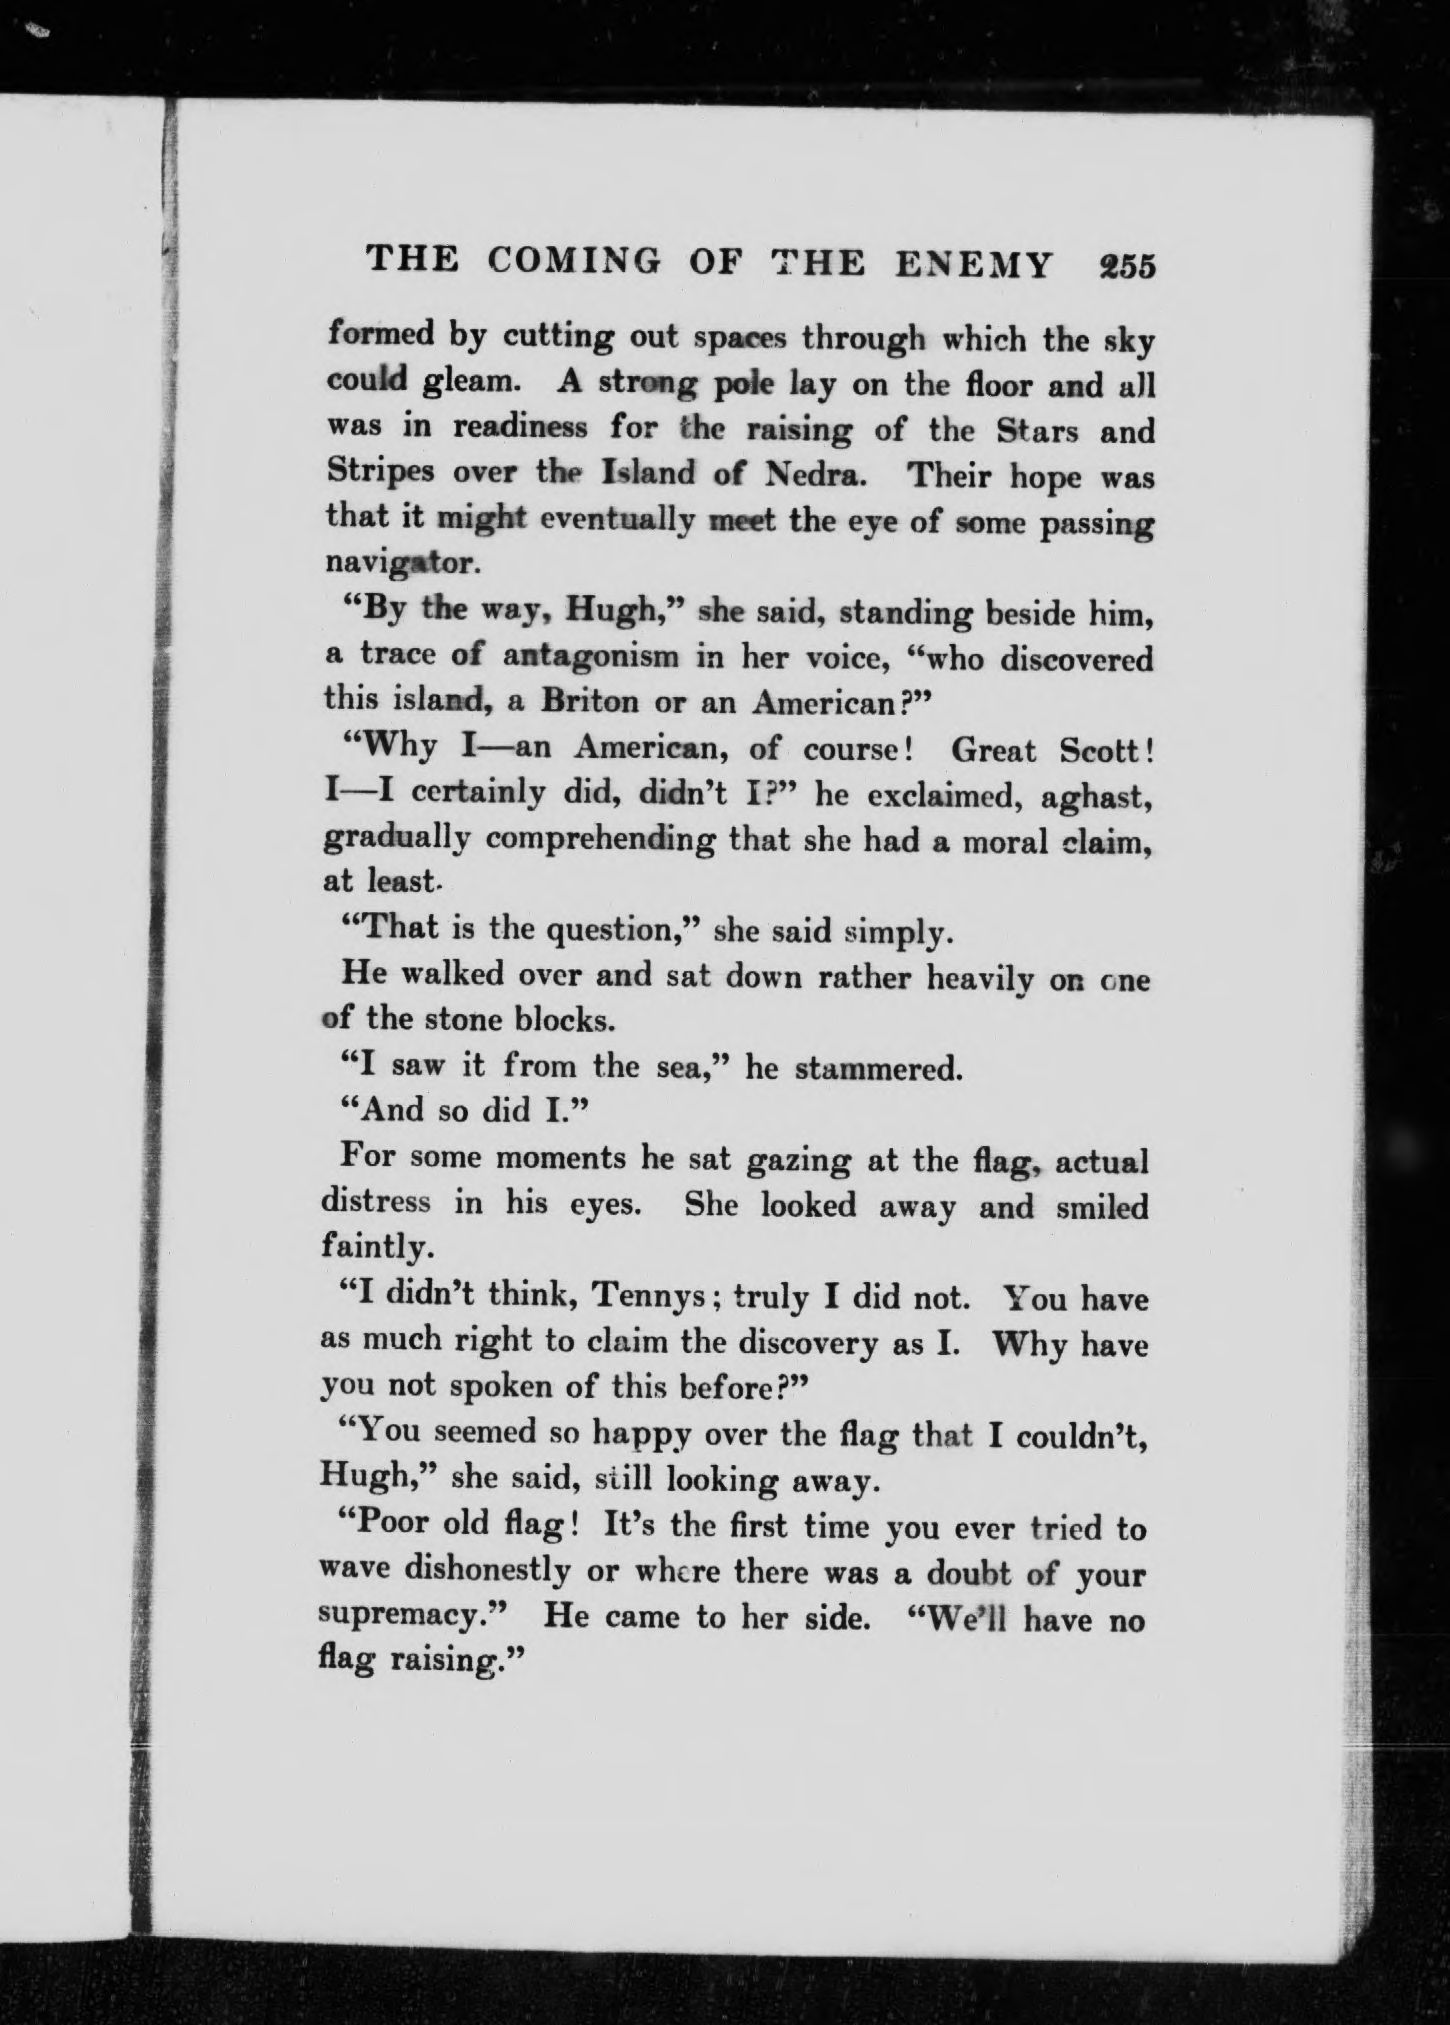 THE COMING OF THE ENEMY 255
formed by cutting out spaces through which the sky
could gleam. A strong pole lay on the floor and all
was in readiness for the raising of the Stars and
Stripes over the Island of Nedra. Their hope was
that it might eventually meet the eye of some passing
navigator.
“By the way, Hugh,” she said, standing beside him,
a trace of antagonism in her voice, “who discovered
this island, a Briton or an American?”
“Why I—an American, of course! Great Scott!
I—I certainly did, didn’t I?” he exclaimed, aghast,
gradually comprehending that she had a moral claim,
at least.
“That is the question,” she said simply.
He walked over and sat down rather heavily on one
of the stone blocks.
“I saw it from the sea,” he stammered.
“And so did I.”
For some moments he sat gazing at the flag, actual
distress in his eyes. She looked away and smiled
faintly.
“I didn’t think, Tennys; truly I did not. You have
as much right to claim the discovery as I. Why have
you not spoken of this before?”
“You seemed so happy over the flag that I couldn’t,
Hugh,” she said, still looking away.
“Poor old flag! It’s the first time you ever tried to
wave dishonestly or where there was a doubt of your
supremacy.” He came to her side. “We’ll have no
flag raising.”